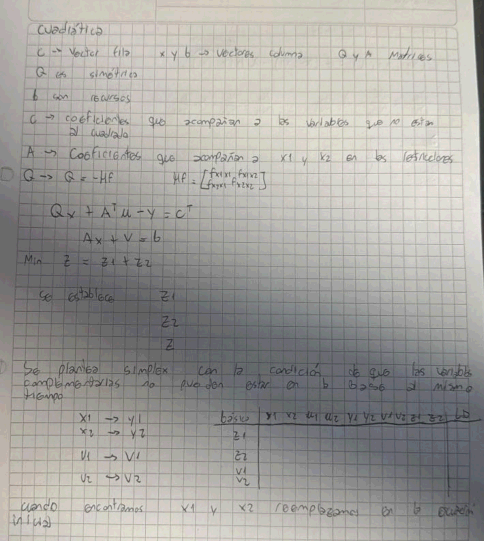 Cuadrática
C → Vector fila x y b → vectores columna Q y A Matrices
Q es simétrica
b son recursos
C → coeficientes que acompañan a las variables que no estan
al cuadrado
A → Coeficientes que acompañan a x1 y x2 en las restricciones
Q → Q = -Hf Hf = [fx1x1 fx1x2
fx2x1 fx2x2]
Qx + Aᵀu - y = cᵀ
Ax + V = b
Min Z = Z1 + Z2
se establece Z1
Z2
Z
Se plantea simplex con la condición de que las variables
complementarias no pueden estar en la base al mismo
tiempo
X1 → Y1 básico x1 x2 u1 u2 Y1 Y2 V1 V2 Z1 Z2
X2 → Y2 Z1
U1 → V1 Z2
V1
U2 → V2 V2
cuando encontramos x1 y x2 reemplazamos en la ecuación
inicial